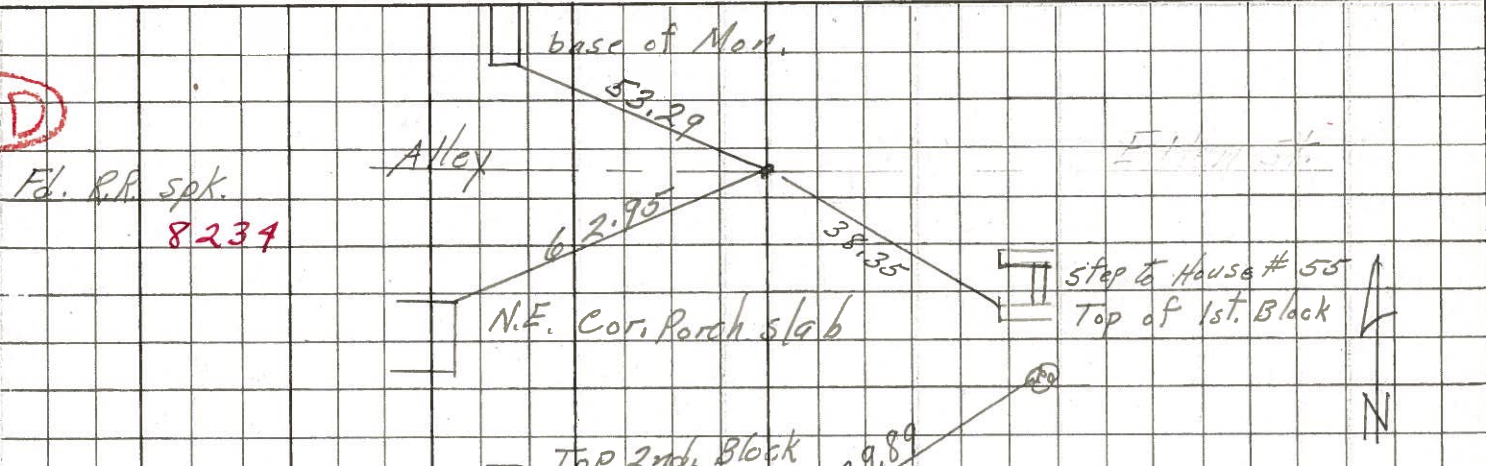 base of Mon.
D
53.29
Alley
Fd. R.R. spk.
8234
62.95
38.35
step to House # 55
Top of 1st. Block
N.E. Cor. Porch slab
N
Top 2nd. Block
9.89